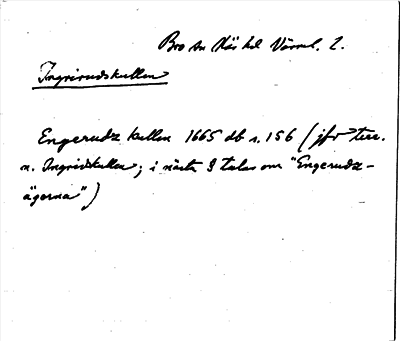 Bro sn Näs hd Värml. l.
Ingrirudskullen
Engerudz kullen 1665 db s. 156 (jfr terr.
n. Ingridskullen; i nästa § talas om "Engerudz-
ägorna")